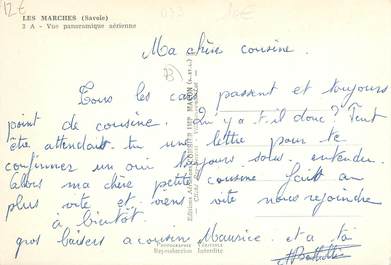 12€
LES MARCHES (Savoie)
3 A - Vue panoramique aérienne
Ma chère cousine.
Tous les cars passent et toujours
point de cousine. Qu'y a-t-il donc? Peut
être attendait tu une lettre pour te
confirmer un oui toujours sous entendu.
allors ma chère petite cousine fait au
plus vite et viens vite nous rejoindre
à bientôt.
gros baisers a cousin Maurice. et a toi
Reproduction Interdite